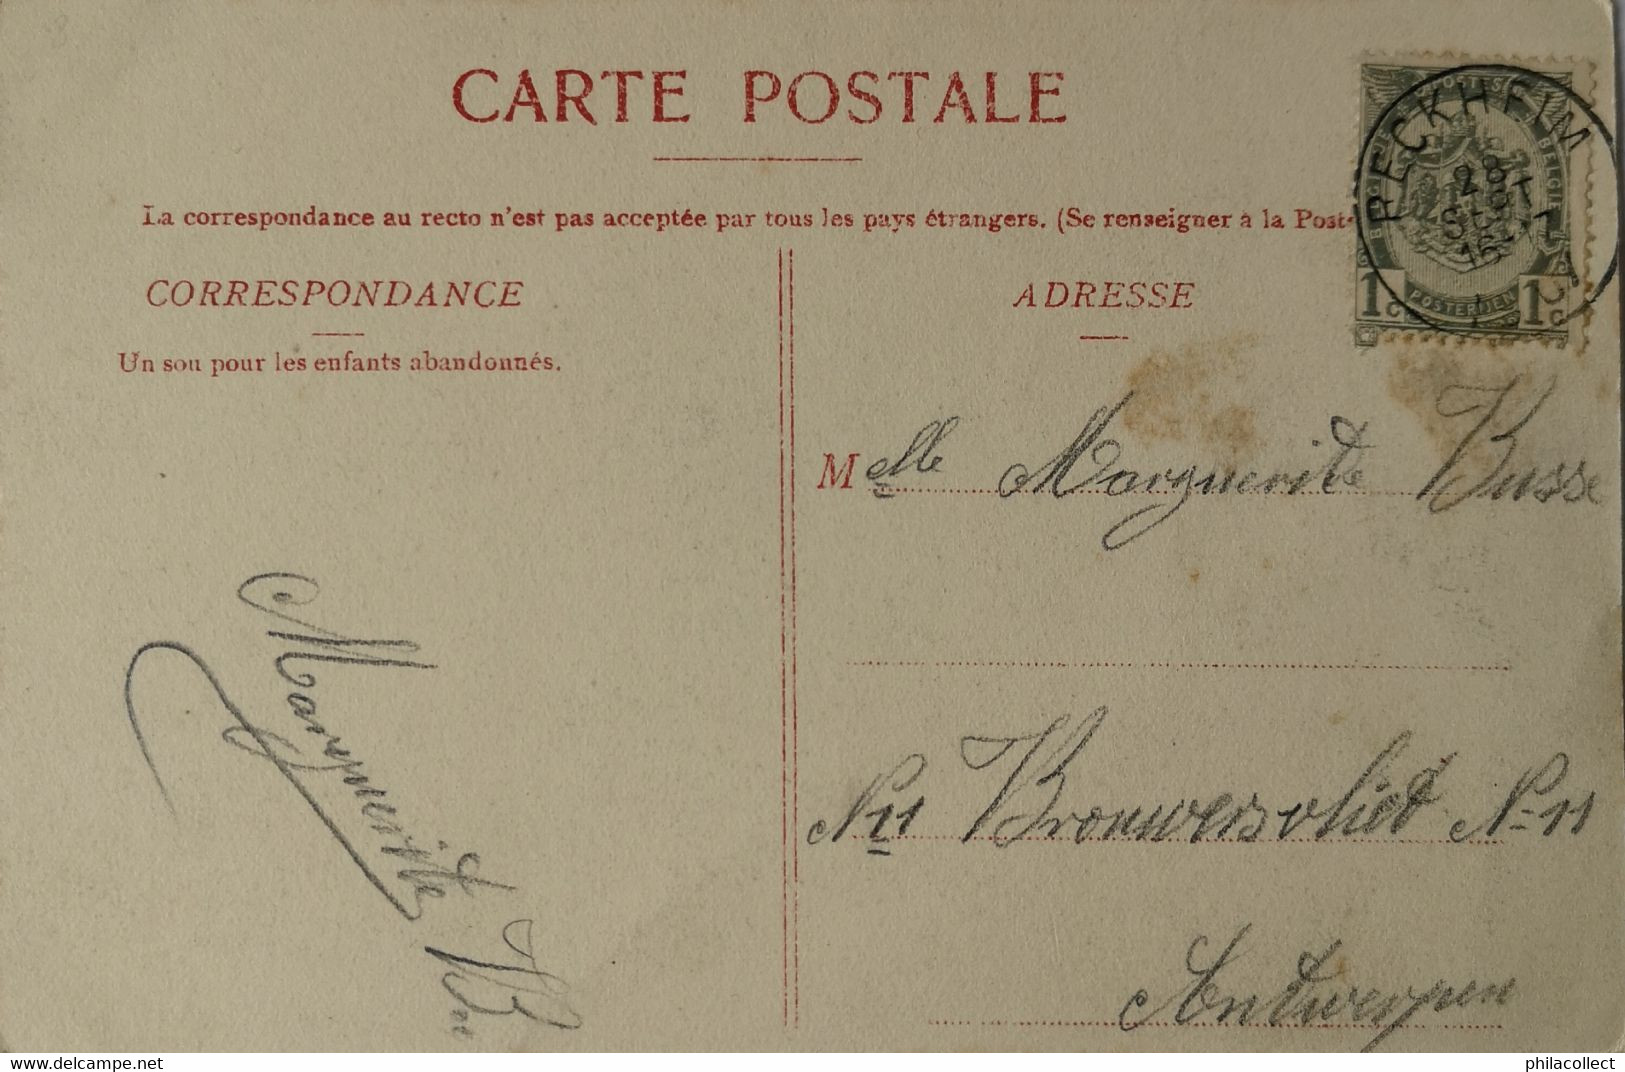 CARTE POSTALE
La correspondance au recto n'est pas acceptée par tous les pays étrangers. (Se renseigner à la Post
CORRESPONDANCE
Un sou pour les enfants abandonnés.
ADRESSE
RECKHEIM
28
SEPT
16
POSTES
BELGIQUE
BELGIE
POSTERIJEN
1c 1c
Melle Marguerite Busse
No 11 Brouwersvliet No 11
Antwerpen
Marguerite
delcampe.net
philacollect